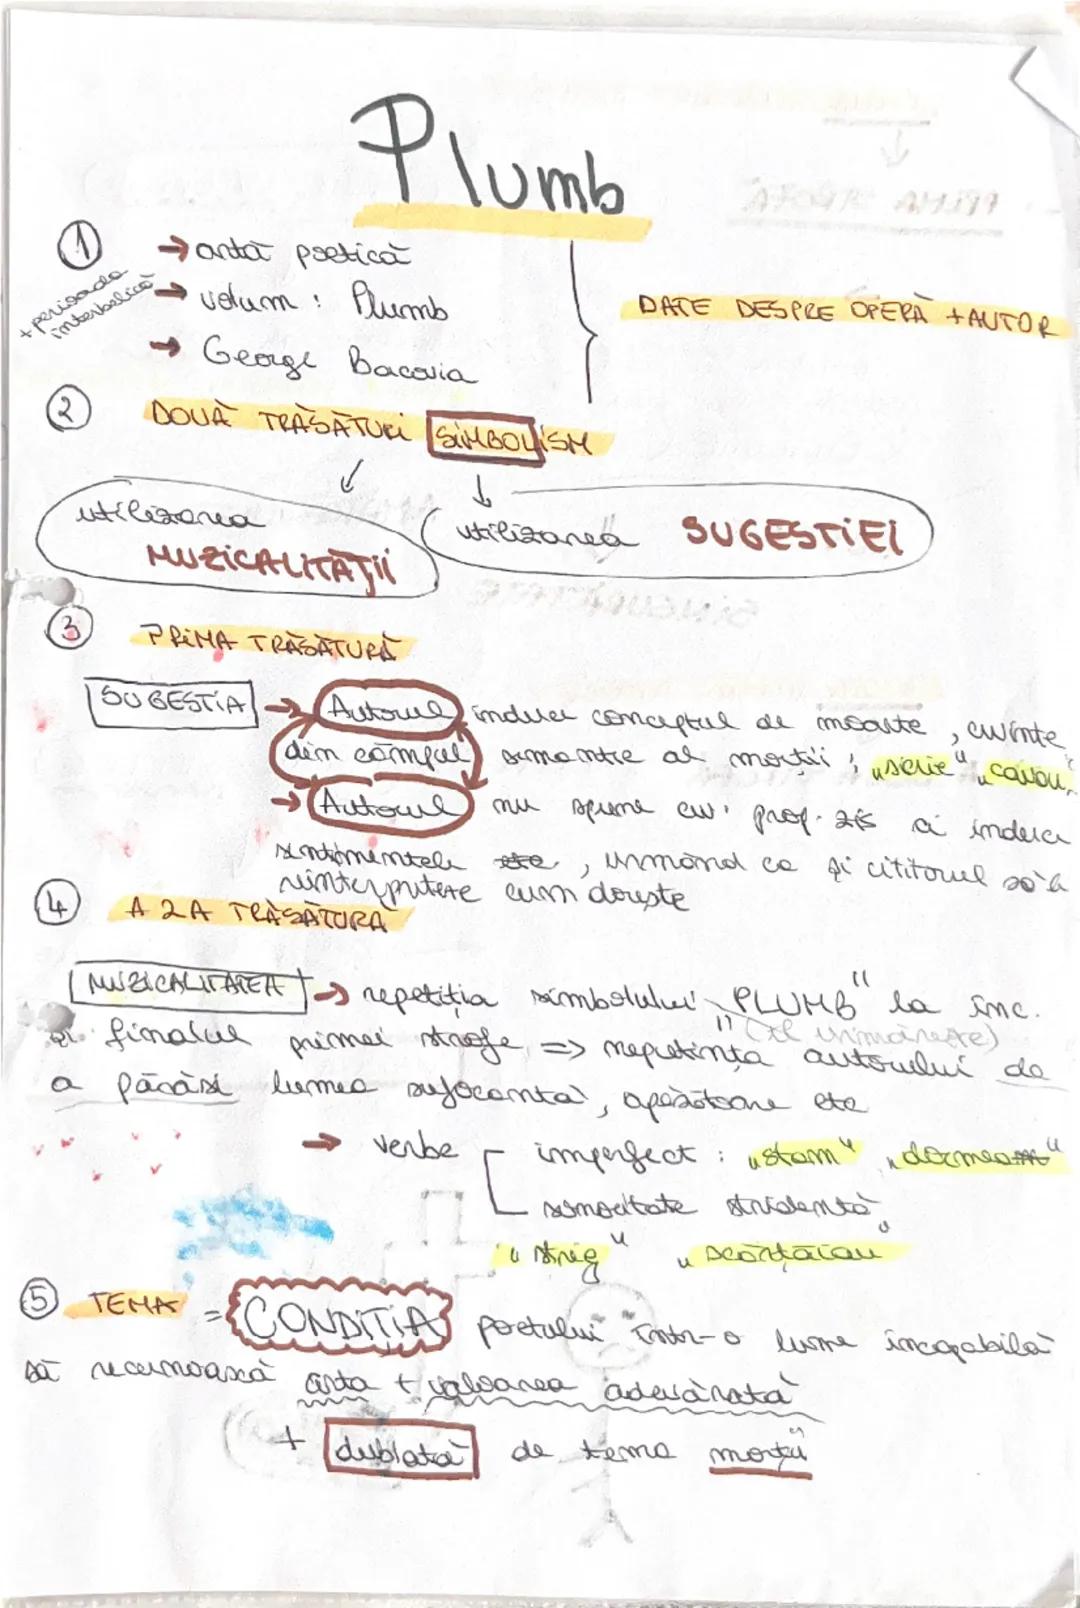 Plumb
① → artă poetică
+ perioada interbelică
→ volum : Plumb
→ George Bacovia
DATE DESPRE OPERĂ + AUTOR
② DOUĂ TRĂSĂTURI SIMBOLISM
utilizarea MUZICALITĂȚII
utilizarea SUGESTIEI
③ PRIMA TRĂSĂTURĂ
SUGESTIA → Autorul induce conceptul de moarte, cuvinte
din câmpul semantic al morții ; „sicrie" „cavou"
→ Autorul nu spune cuv. prop. zis ci induce
sentimentele, urmând ca și cititorul să-l
reinterpretere cum dorește
④ A 2A TRĂSĂTURĂ
MUZICALITATEA → repetiția simbolului „PLUMB" la înc.
(îl urmărește)
și finalul primei strofe => neputința autorului de
a părăsi lumea sufocantă, apăsătoare etc
→ verbe imperfect : „stam" „dormea"
sonoritate stridentă
„strig" „scârțâiau"
⑤ TEMA = CONDIȚIA poetului într-o lume incapabilă
să recunoască arta + valoarea adevărată
+ dublată de tema morții